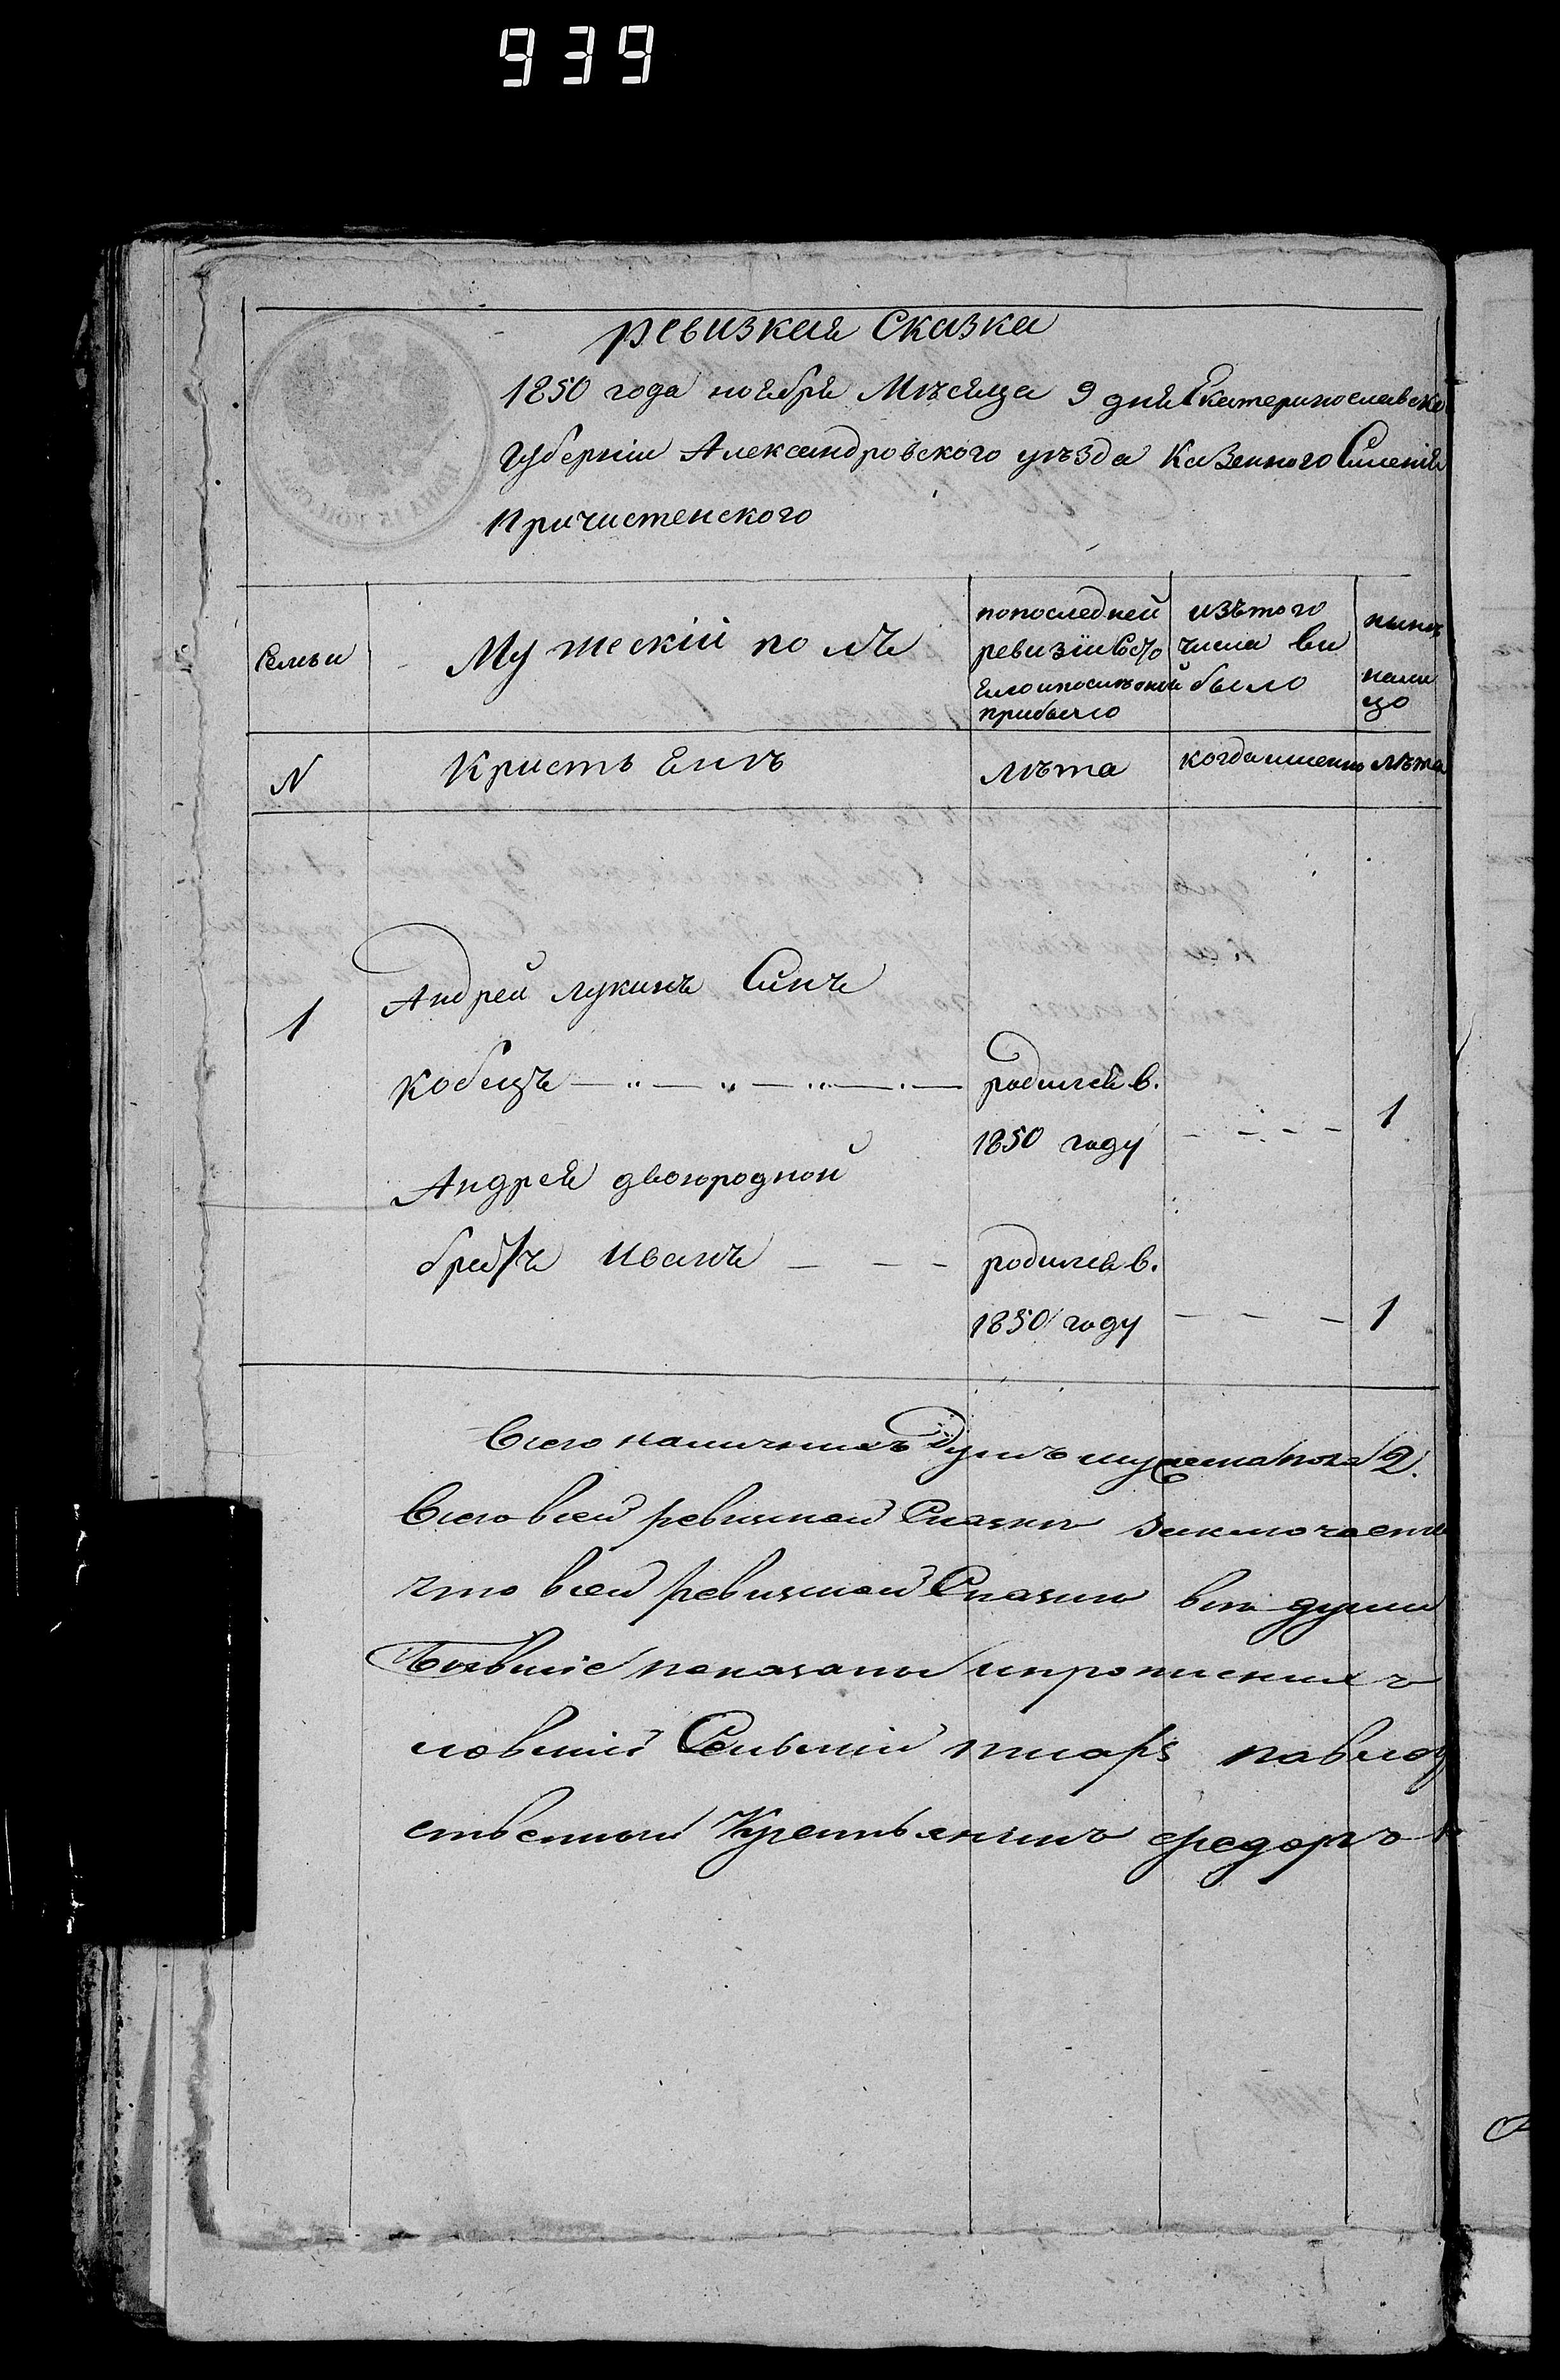 939
ревизкая Сказка
1850 года ноября Мѣсяца 9 дня Екатеринославско
Губерніи Александровского уѣзда Казенного Сименія
Причистенского
Семьи
Мужескій полъ
попоследней
ревизіи Состо
яло ипослѣоной
прибыло
изътого
числа ви
было
нынѣ
нали
цо
N
Кристь Янъ
лѣта
когдаимено
лѣта
1
Андрей лукинъ Синъ
кобецъ
родился в.
1850 году
1
Андрея двоюродной
братъ Иванъ
родился в.
1850 году
1
Всего наличныхъ Душъ мужеска пола 2.
Всего всей ревизкой Сказки заключаетъ
что всей ревизкой Сказки всѣ души
бывшіе показаны
Сельскій писарь
ственный Крестьянинъ Федоръ